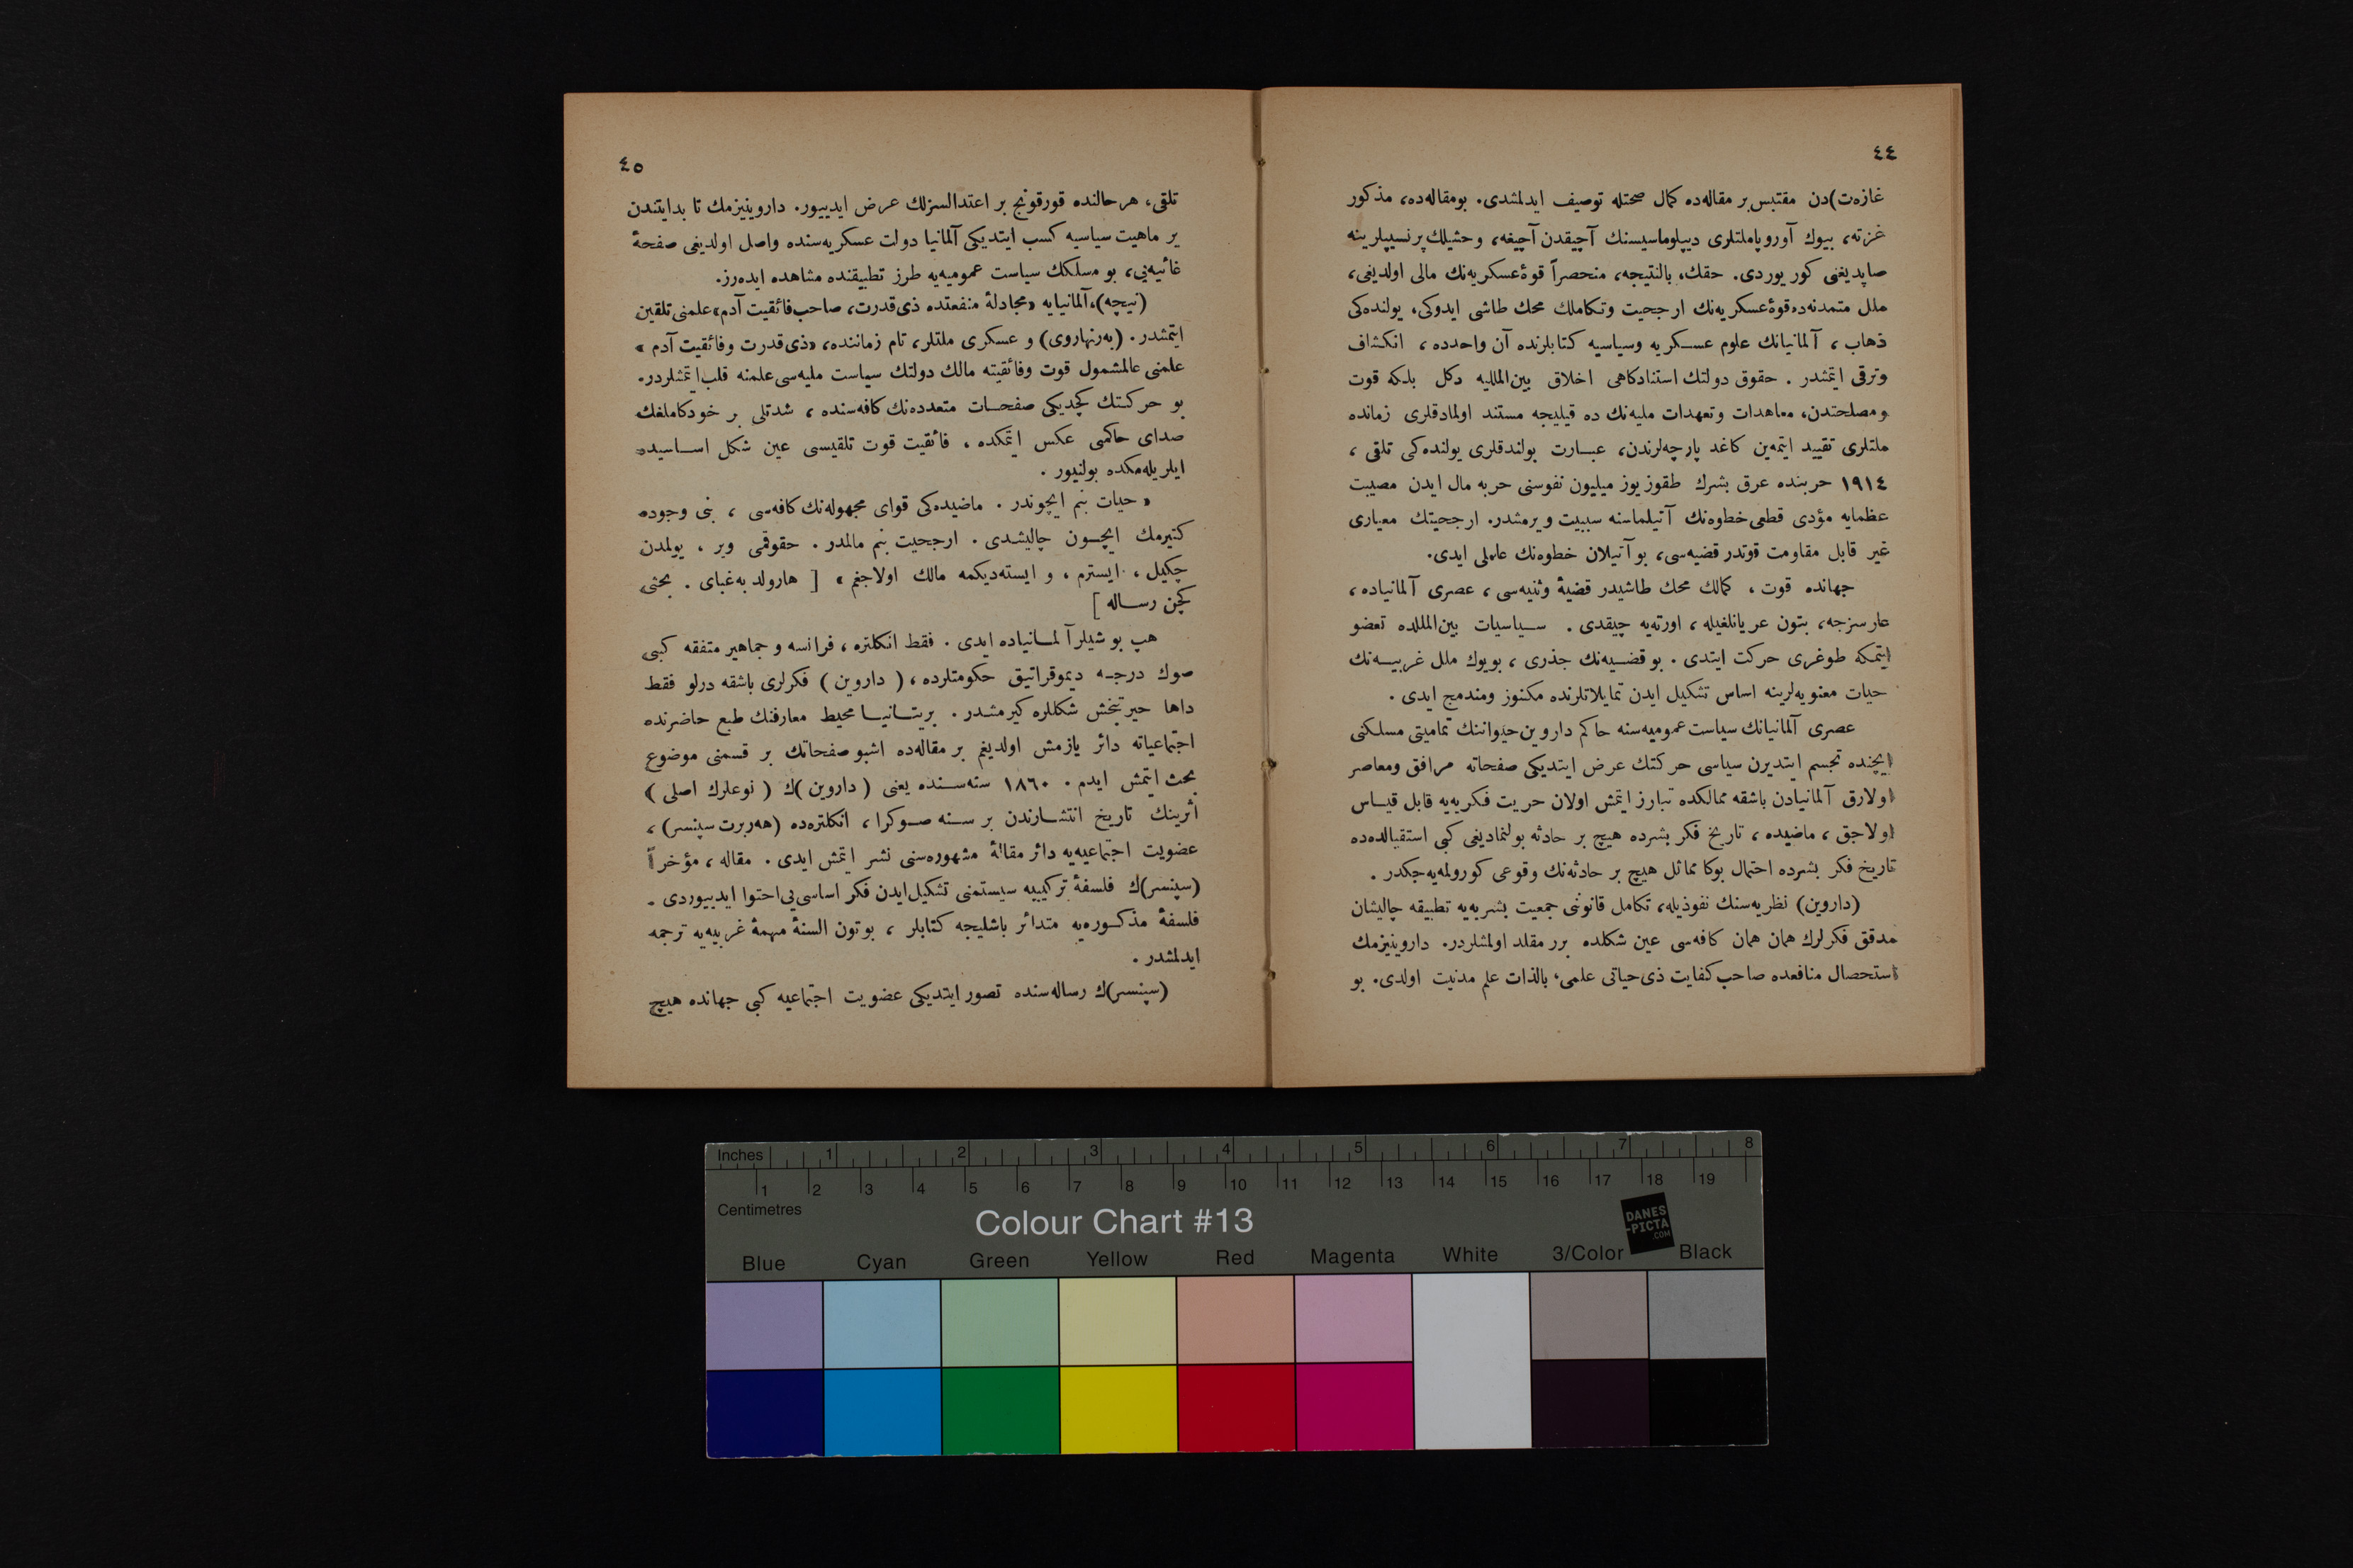 ٤٤
غازه‌ت)دن مقتبس بر مقاله‌ده كمال صحتله توصيف ايدلمشدى. بومقاله‌ده، مذكور
غزته، بيوك آوروپاملتلرى ديپلوماسيسنك آچيقدن آچيغه، وحشيلك پرنسيپلرينه
صاپديغنى كور يوردى. حقك، بالنتيجه، منحصراً قوهٔ عسكريه‌نك مالى اولديغى،
ملل متمدنه‌ده قوهٔ عسكريه‌نك ارجحيت وتكاملك محك طاشى ايدوكى، يولنده‌كى
ذهاب، آلمانيانك علوم عسكريه وسياسيه كتابلرنده آن واحدده، انكشاف
وترقى ايتمشدر. حقوق دولتك استنادكاهى اخلاق بين‌المللیه دكل بلكه قوت
ومصلحتدن، معاهدات وتعهدات مليه‌نك ده قيليجه مستند اولمادقلرى زمانده
ملتلرى تقييد ايتمه‌ين كاغد پارچه‌لرندن، عبارت بولندقلرى يولنده‌كى تلقى،
١٩١٤ حربنده عرق بشرك طقوز يوز ميليون نفوسنى حربه مال ايدن مصيبت
عظمايه مؤدى قطعى خطوه‌نك آتيلماسنه سببيت ويرمشدر. ارجحيتك معيارى
غير قابل مقاومت قوتدر قضيه‌سى، بو آتيلان خطوه‌نك عاملى ايدى.
جهانده قوت، كمالك محك طاشيدر قضيهٔ وثنيه‌سى، عصرى آلمانياده،
عارسزجه، بتون عريانلغيله، اورته‌يه چيقدى. سياسيات بين‌المللده تعضو
ايتمكه طوغرى حركت ايتدى. بو قضيه‌نك جذرى، بويوك ملل غربيه‌نك
حيات معنويه‌لرينه اساس تشكيل ايدن تمايلاتلرنده مكنوز ومندمج ايدى.
عصرى آلمانيانك سياست عموميه‌سنه حاكم داروين حيواننك تماميتى مسلكنى
ايچنده تجسم ايتديرن سياسى حركتك عرض ايتديكى صفحاته مرافق ومعاصر
اولارق آلمانيادن باشقه ممالكده تبارز ايتمش اولان حريت فكريه‌يه قابل قياس
اولاجق، ماضيده، تاريخ فكر بشرده هيچ بر حادثه بولنماديغى كبى استقبالده‌ده
تاريخ فكر بشرده احتمال بوكا مماثل هيچ بر حادثه‌نك وقوعى كورولمه‌يه‌جكدر.
(داروين) نظريه‌سنك نفوذيله، تكامل قانوننى جمعيت بشريه‌يه تطبيقه چاليشان
مدقق فكرلرك همان همان كافه‌سى عين شكلده برر مقلد اولمشلردر. داروينيزمك
استحصال منافعده صاحب كفايت ذى‌حياتى علمى، بالذات علم مدنيت اولدى. بو
٤٥
تلقى، هر حالنده قورقونج بر اعتدالسزلك عرض ايدييور. داروينيزمك تا بدايتندن
بر ماهيت سياسيه كسب ايتديكى آلمانيا دولت عسكريه‌سنده واصل اولديغى صفحهٔ
غائيه‌يى، بو مسلكك سياست عموميه‌يه طرز تطبيقنده مشاهده ايده‌رز.
(نيچه)، آلمانيايه «مجادلهٔ منفعتده ذى‌قدرت، صاحب فائقيت آدم» علمنى تلقين
ايتمشدر. (به‌رنهاروى) و عسكرى ملتلر، تام زماننده، «ذى قدرت وفائقيت آدم»
علمنى عالمشمول قوت وفائقيته مالك دولتك سياست مليه‌سى علمنه قلب ايتمشلردر.
بو حركتك كچديكى صفحات متعدده‌نك كافه‌سنده، شدتلى بر خودكاملغك
صداى حاكمى عكس ايتمكده، فائقيت قوت تلقيسى عين شكل اساسيده
ايلريله‌مكده بولنيور.
«حيات بنم ايچوندر. ماضيده‌كى قواى مجهوله‌نك كافه‌سى، بنى وجوده
كتيرمك ايچون چاليشدى. ارجحيت بنم مالمدر. حقوقمى وير، يولمدن
چكيل، ايسترم، و ايسته‌ديكمه مالك اولاجغم» [هارولد به‌غباى. بحثى
كچن رساله]
هپ بو شيلر آلمانياده ايدى. فقط انكلتره، فرانسه و جماهير متفقه كبى
صوك درجه ديموقراتيق حكومتلرده، (داروين) فكرلرى باشقه درلو فقط
داها حيرتبخش شكللره كيرمشدر. بريتانيا محيط معارفنك طبع حاضرنده
اجتماعياته دائر يازمش اولديغم بر مقاله‌ده اشبو صفحاتك بر قسمنى موضوع
بحث ايتمش ايدم. ١٨٦٠ سنه‌سنده يعنى (داروين)ك (نوعلرك اصلى)
اثرينك تاريخ انتشارندن بر سنه صوكرا، انكلتره‌ده (هه‌ربرت سپنسر)،
عضويت اجتماعيه‌يه دائر مقالهٔ مشهوره‌سنى نشر ايتمش ايدى. مقاله، مؤخراً
(سپنسر)ك فلسفهٔ تركيبيه سيستمنى تشكيل ايدن فكر اساسى‌يى احتوا ايدييوردى.
فلسفهٔ مذكوره‌يه متدائر باشليجه كتابلر، بوتون السنهٔ مهمهٔ غربيه‌يه ترجمه
ايدلمشدر.
(سپنسر)ك رساله‌سنده تصور ايتديكى عضويت اجتماعيه كبى جهانده هيچ
Inches 1 2 3 4 5 6 7 8
1 2 3 4 5 6 7 8 9 10 11 12 13 14 15 16 17 18 19
Centimetres
Colour Chart #13
DANES
-PICTA
.COM
Blue Cyan Green Yellow Red Magenta White 3/Color Black